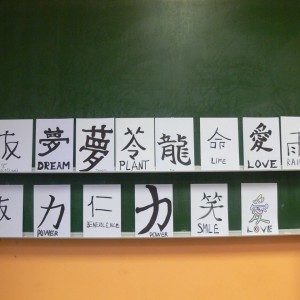 夢 夢 苓 龍 命 愛 雨
DREAM PLANT LIFE LOVE RAI
力 仁 力 笑 愛
POWER BENEVOLENCE POWER SMILE LOVE